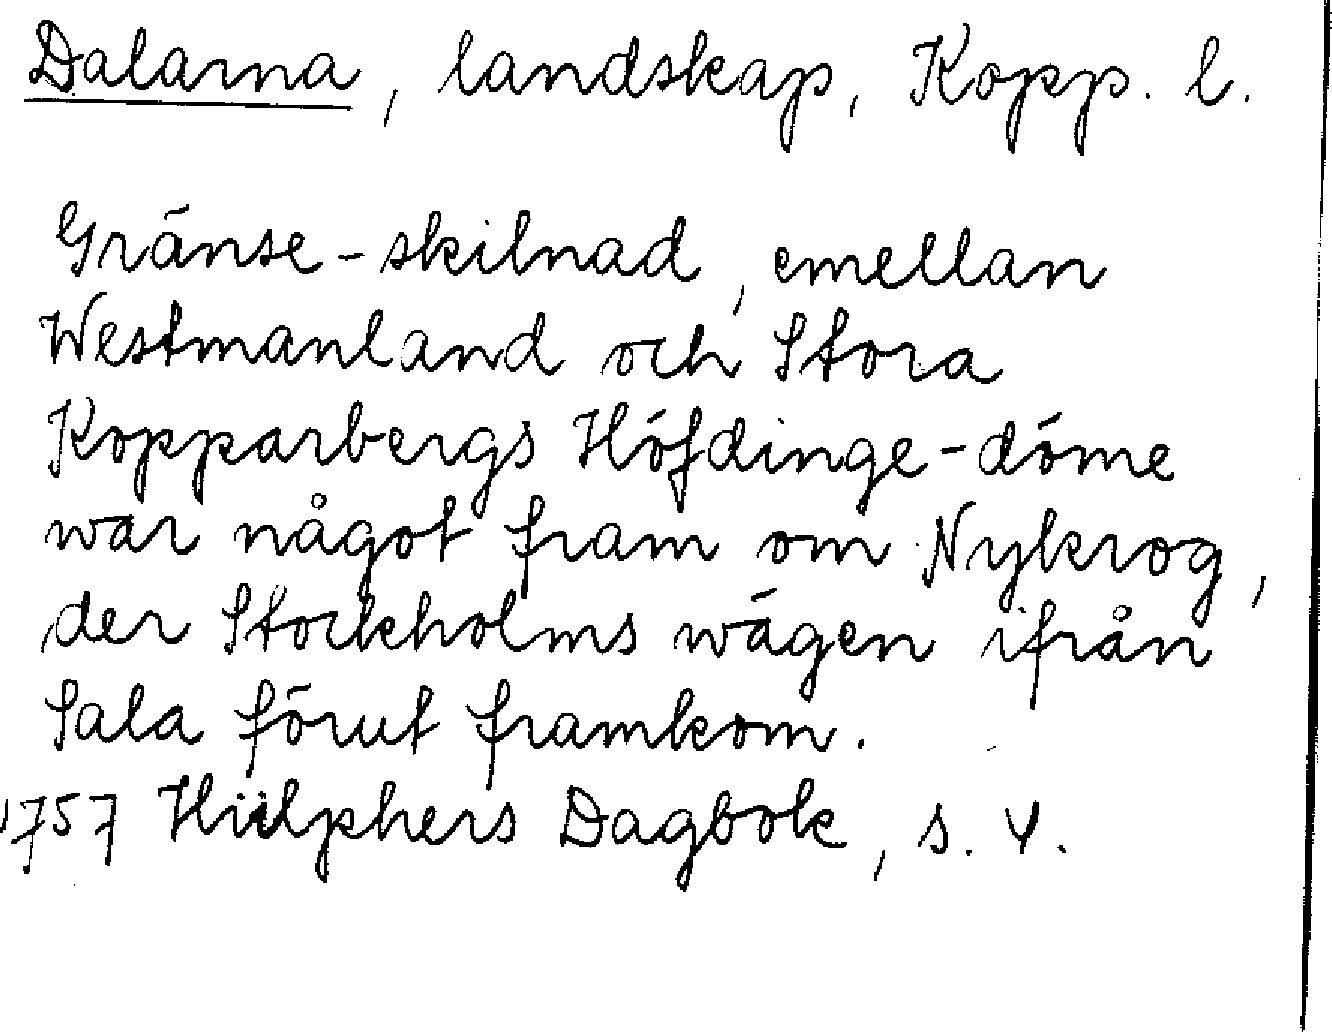 Dalarna, landskap, Kopp. l.
Gränse-skilnad, emellan
Westmanland och Stora
Kopparbergs Höfdinge-döme
war något fram om Nykrog,
der Stockholms wägen ifrån
Sala förut framkom.
1757 Hülphers Dagbok, s. 4.